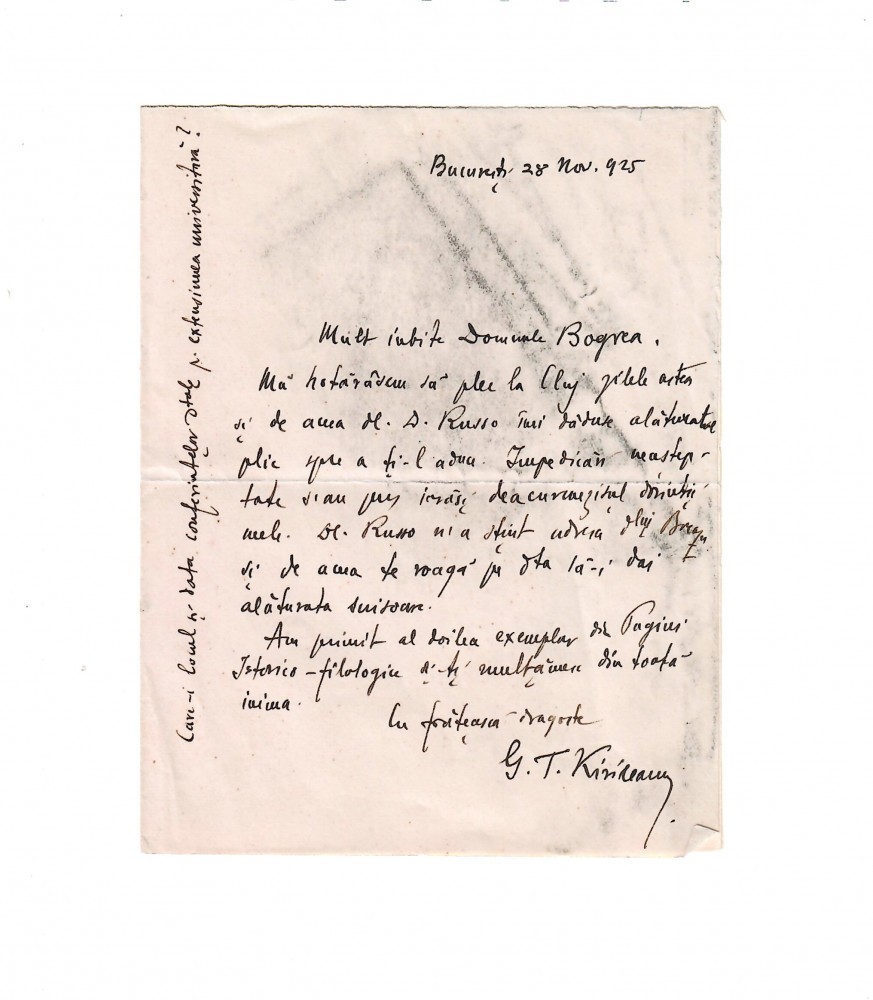 București 28 Nov. 925
Mult iubite Domnule Bogrea,
Mă hotărâsem să plec la Cluj zilele astea
și de aceea dl. D. Russo îmi dăduse alăturatul
plic spre a ți-l aduce. Impedicări neaștep-
tate s'au pus iarăși deacurmezișul dorinții
mele. Dl. Russo n'a știut adresa dlui
și de aceea te roagă pe dta să-i dai
alăturata scrisoare.
Am primit al doilea exemplar din Pagini
Istorico-filologice și-ți mulțămesc din toată
inima.
Cu frățească dragoste
G. T. Kirileanu
Care-i locul și data conferințelor dtale pt. extensiunea universitară?